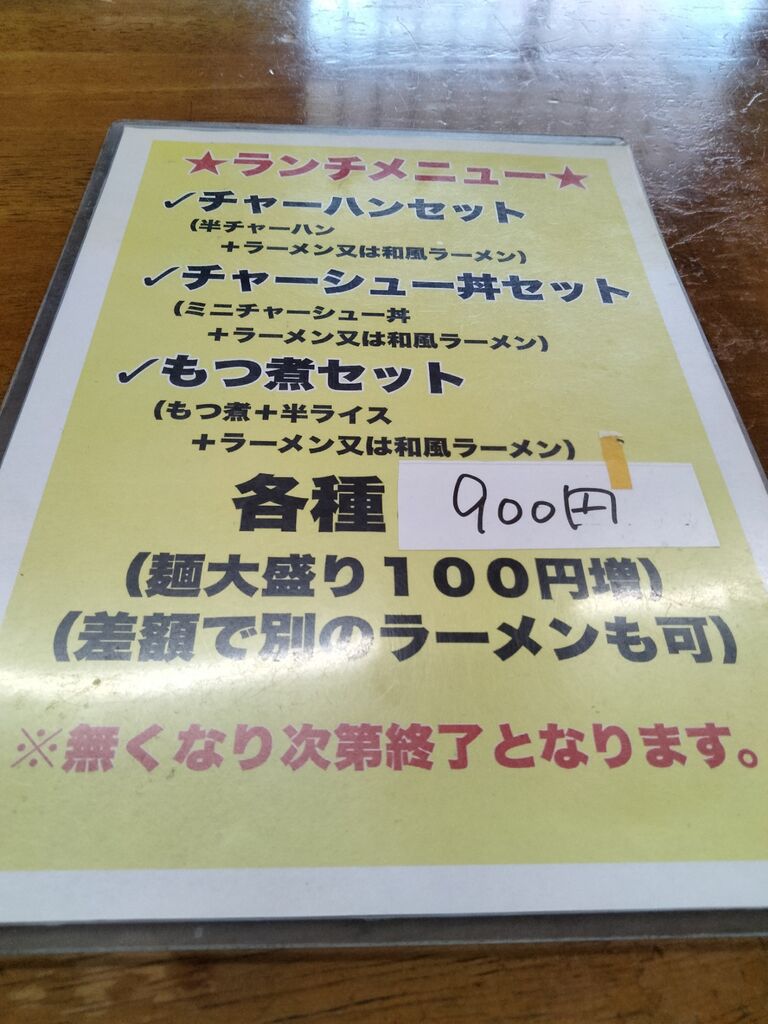 ★ランチメニュー★
✓チャーハンセット
(半チャーハン
+ラーメン又は和風ラーメン)
✓チャーシュー丼セット
(ミニチャーシュー丼
+ラーメン又は和風ラーメン)
✓もつ煮セット
(もつ煮+半ライス
+ラーメン又は和風ラーメン)
各種 900円
(麺大盛り100円増)
(差額で別のラーメンも可)
※無くなり次第終了となります。